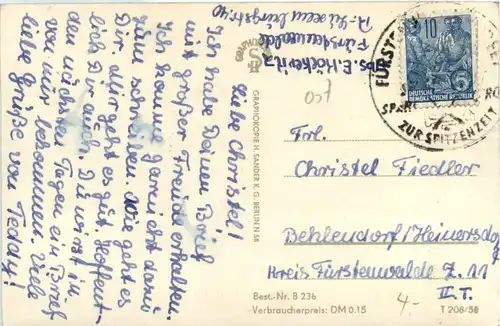 Liebe Christel!
Ich habe Deinen Brief
mit großer Freude erhalten.
Ich komme garnicht dazu
zum schreiben. Wie geht es
Dir, aller geht es gut. Hoffent-
lich Dir auch. Du wirst in
den nächsten Tagen ein Brief
von mir bekommen. Viele
liebe Grüße von Teddy!
Abs. E. Höckeritz
Fürstenwalde
GRAPHOKOPIE H. SANDER K. G. BERLIN N 58
10
DEUTSCHE
DEMOKRATISCHE REPUBLIK
FÜRSTEN
ZUR SPITZENZEIT
Frl.
Christel Fiedler
Behlendorf/Heinersdorf
Kreis Fürstenwalde Z. 11
II. T.
4.-
Best.-Nr. B 236
Verbraucherpreis: DM 0.15
T 208/58